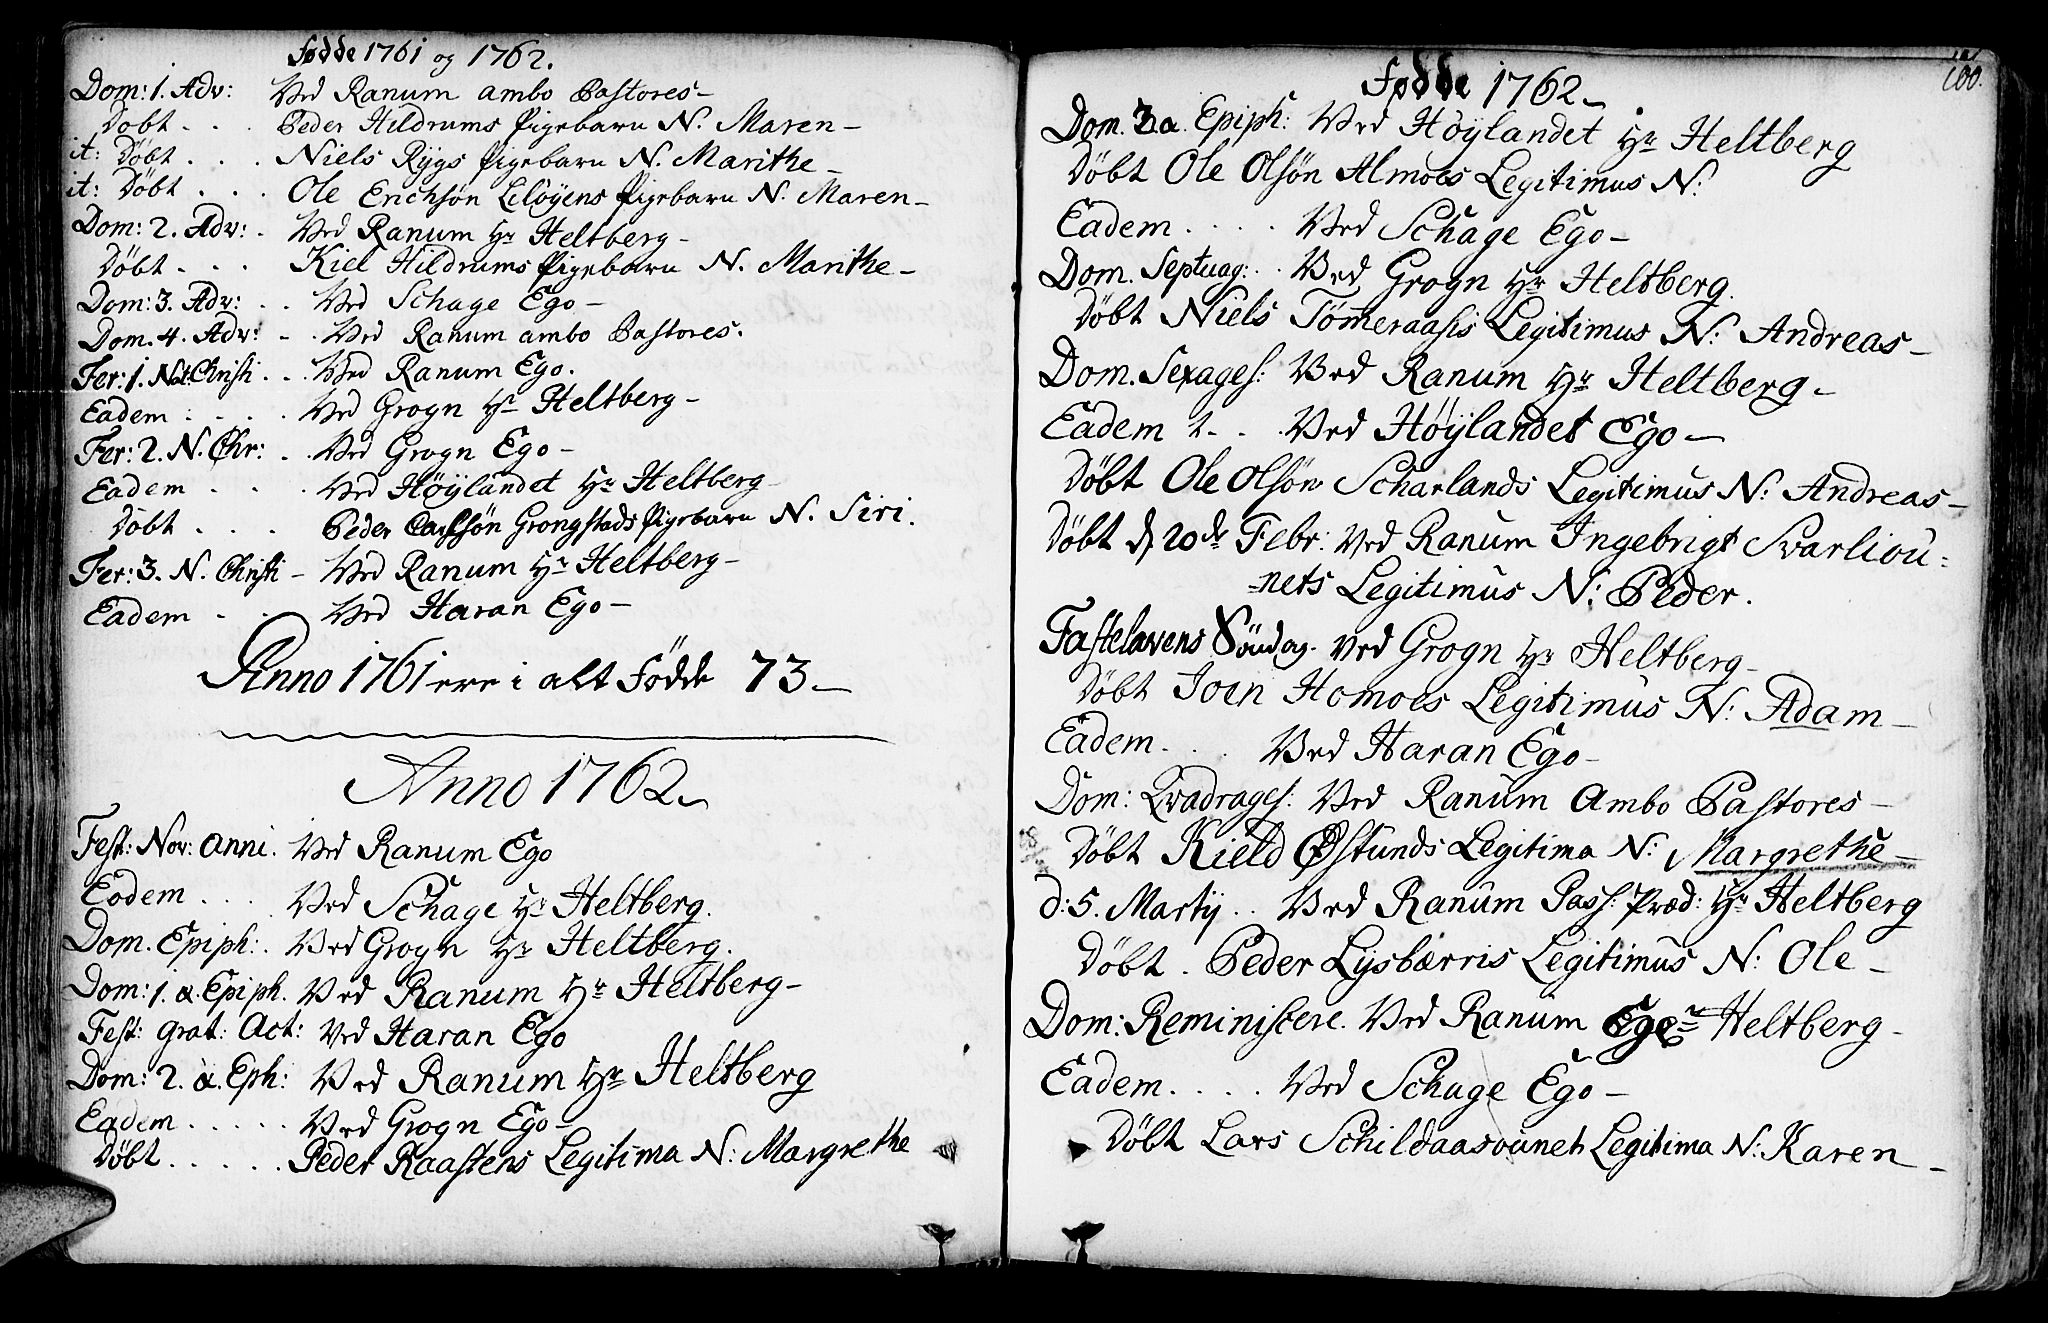 Fødde 1761 og 1762.
Dom: 1. Adv: Ved Ranum ambo Pastores-
Døbt . . . Peder Hildrums Pigebarn N. Maren-
it: Døbt . . . Niels Rygs Pigebarn N. Marithe-
it: Døbt . . . Ole Erichsøn Leløyens Pigebarn N. Maren-
Dom: 2. Adv: . Ved Ranum Hr Heltberg-
Døbt . . . Kiel Hildrums Pigebarn N. Marithe-
Dom: 3. Adv: . . Ved Schage Ego-
Dom. 4. Adv: - . Ved Ranum ambo Pastores.
Fer: 1. Nat: Christi . . . Ved Ranum Ego.
Eadem : . . . Ved Grogn Hr Heltberg-
Fer: 2. N. Chr: . . . Ved Grogn Ego-
Eadem . . . Ved Høylandet Hr Heltberg
Døbt . . . Peder Grongstads Pigebarn N. Siri.
Fer: 3. N. Christi - Ved Ranum Hr Heltberg-
Eadem - . Ved Haran Ego-
Anno 1761 ere i alt Fødde 73-
Anno 1762.
Fest: Nov: anni. Ved Ranum Ego
Eodem . . . Ved Schage Hr Heltberg.
Dom. Epiph: . Ved Grogn Hr Heltberg.
Dom: 1. a. Epiph. Ved Ranum Hr Heltberg-
Fest: grat: Act: Ved Haran Ego
Dom: 2. a. Eph: Ved Ranum Hr Heltberg
Eadem . . . . . Ved Grogn Ego-
Døbt . . . . . Peder Raastens Legitima N: Margrethe
100.
Fødde 1762-
Dom. 3. a. Epiph: Ved Høylandet Hr Heltberg
Døbt Ole Olsøn Almoes Legitimus N:
Eadem . . . . Ved Schage Ego-
Dom. Septuag: . . Ved Grogn Hr Heltberg.
Døbt Niels Tømeraasis Legitimus N: Andreas-
Dom. Sexages: Ved Ranum Hr Heltberg-
Eadem . . . Ved Høylandet Ego-
Døbt Ole Olsøn Scharlands Legitimus N: Andreas-
Døbt d 20de Febr: Ved Ranum Ingebrigt Svarliou:
-nets Legitimus N: Peder.
Fastelavens Søndag. Ved Grogn Hr Heltberg-
Døbt Joen Homoes Legitimus N: Adam-
Eadem . . . Ved Haran Ego-
Dom: Qvadrages: Ved Ranum Ambo Pastores-
Døbt Kield Østunds Legitima N: Margrethe-
d: 5. Martij . . Ved Ranum Pass: Præd: Hr Heltberg
Døbt . Peder Lysbærris Legitimus N: Ole-
Dom: Reminiscere. Ved Ranum Hr Heltberg-
Eadem . . . . Ved Schage Ego-
Døbt Lars Schildaasvunets Legitima N: Karen-